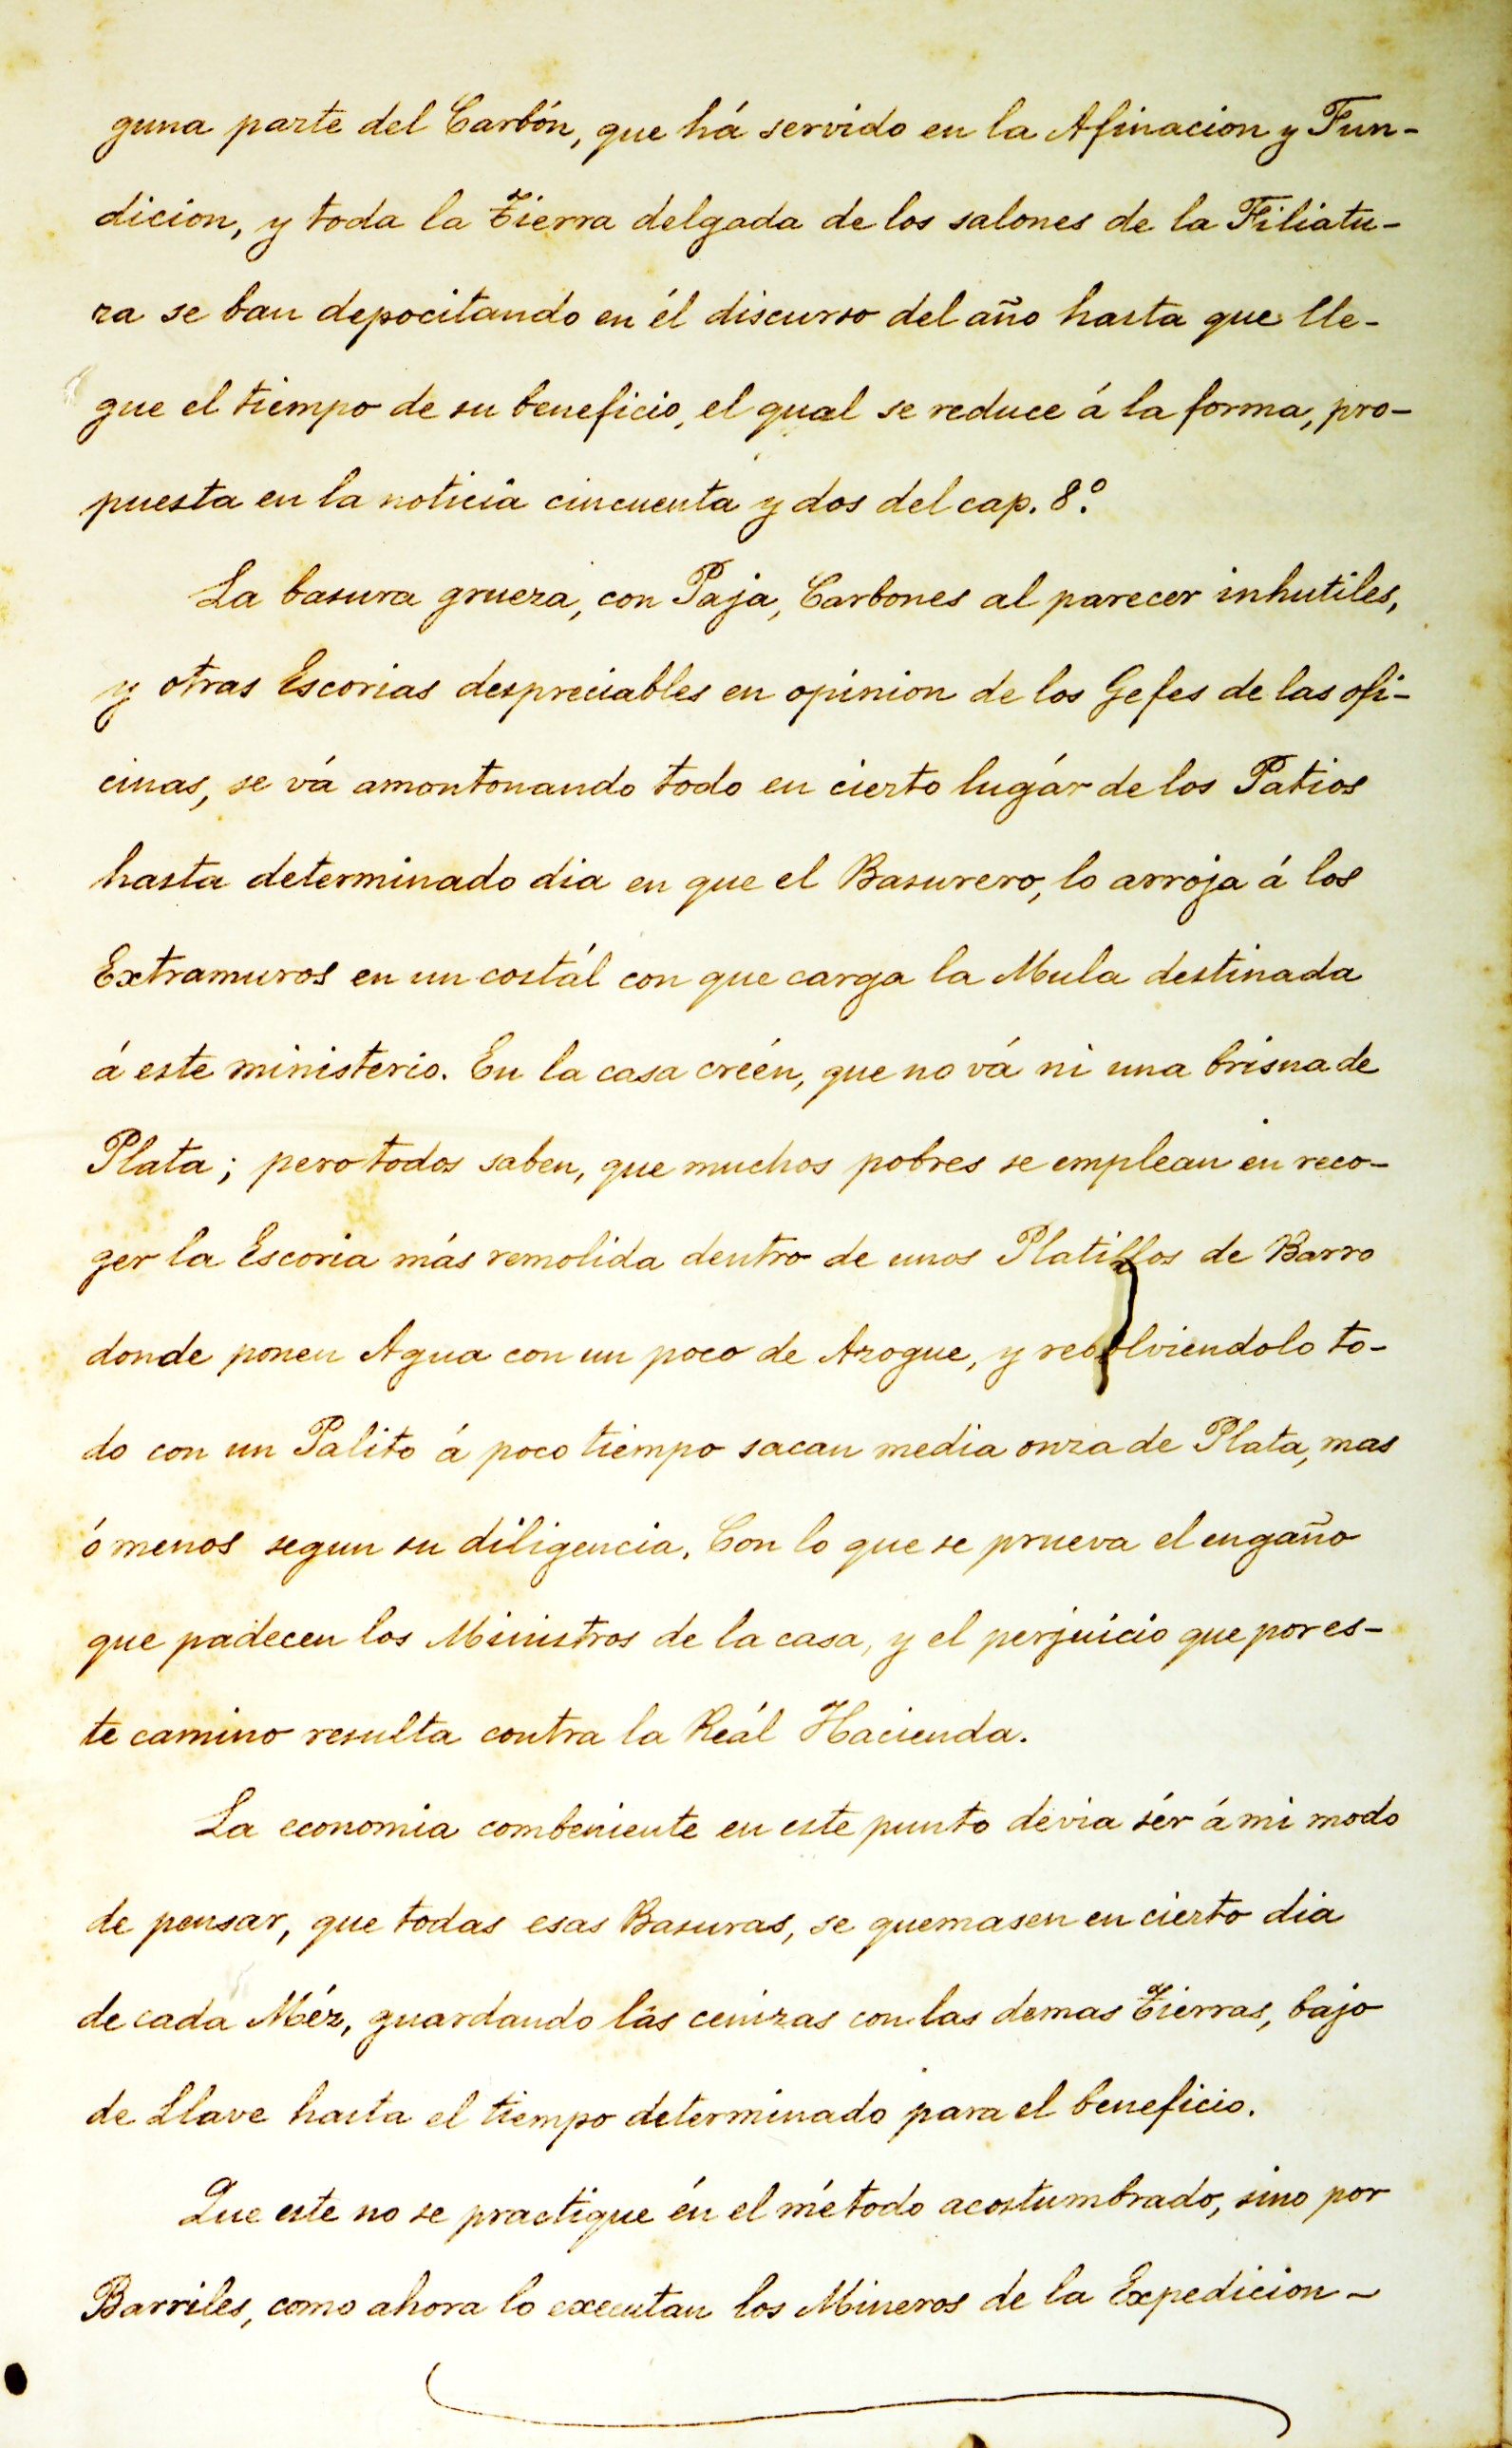 guna parte del Carbón, que há servido en la Afinacion y Fun-
dicion, y toda la Tierra delgada de los salones de la Filiatu-
ra se ban depocitando en él discurso del año hasta que lle-
gue el tiempo de su beneficio, el qual se reduce á la forma, pro-
puesta en la noticia cincuenta y dos del cap. 8º.
La basura grueza, con Paja, Carbones al parecer inhutiles,
y otras Escorias despreciables en opinion de los Gefes de las ofi-
cinas, se vá amontonando todo en cierto lugár de los Patios
hasta determinado dia en que el Basurero, lo arroja á los
Extramuros en un costál con que carga la Mula destinada
á este ministerio. En la casa créén, que no vá ni una brisna de
Plata; pero todos saben, que muchos pobres se emplean en reco-
ger la Escoria más remolida dentro de unos Platillos de Barro
donde ponen Agua con un poco de Azogue, y revolviendolo to-
do con un Palito á poco tiempo sacan media onza de Plata, mas
ó menos segun su diligencia. Con lo que se prueva el engaño
que padecen los Ministros de la casa, y el perjuicio que por es-
te camino resulta contra la Reál Hacienda.
La economia combeniente en este punto devia sér á mi modo
de pensar, que todas esas Basuras, se quemasen en cierto dia
de cada Méz, guardando las cenizas con las demas Tierras, bajo
de Llave hasta el tiempo determinado para el beneficio.
Que este no se practique én el método acostumbrado, sino por
Barriles, como ahora lo executan los Mineros de la Expedicion-